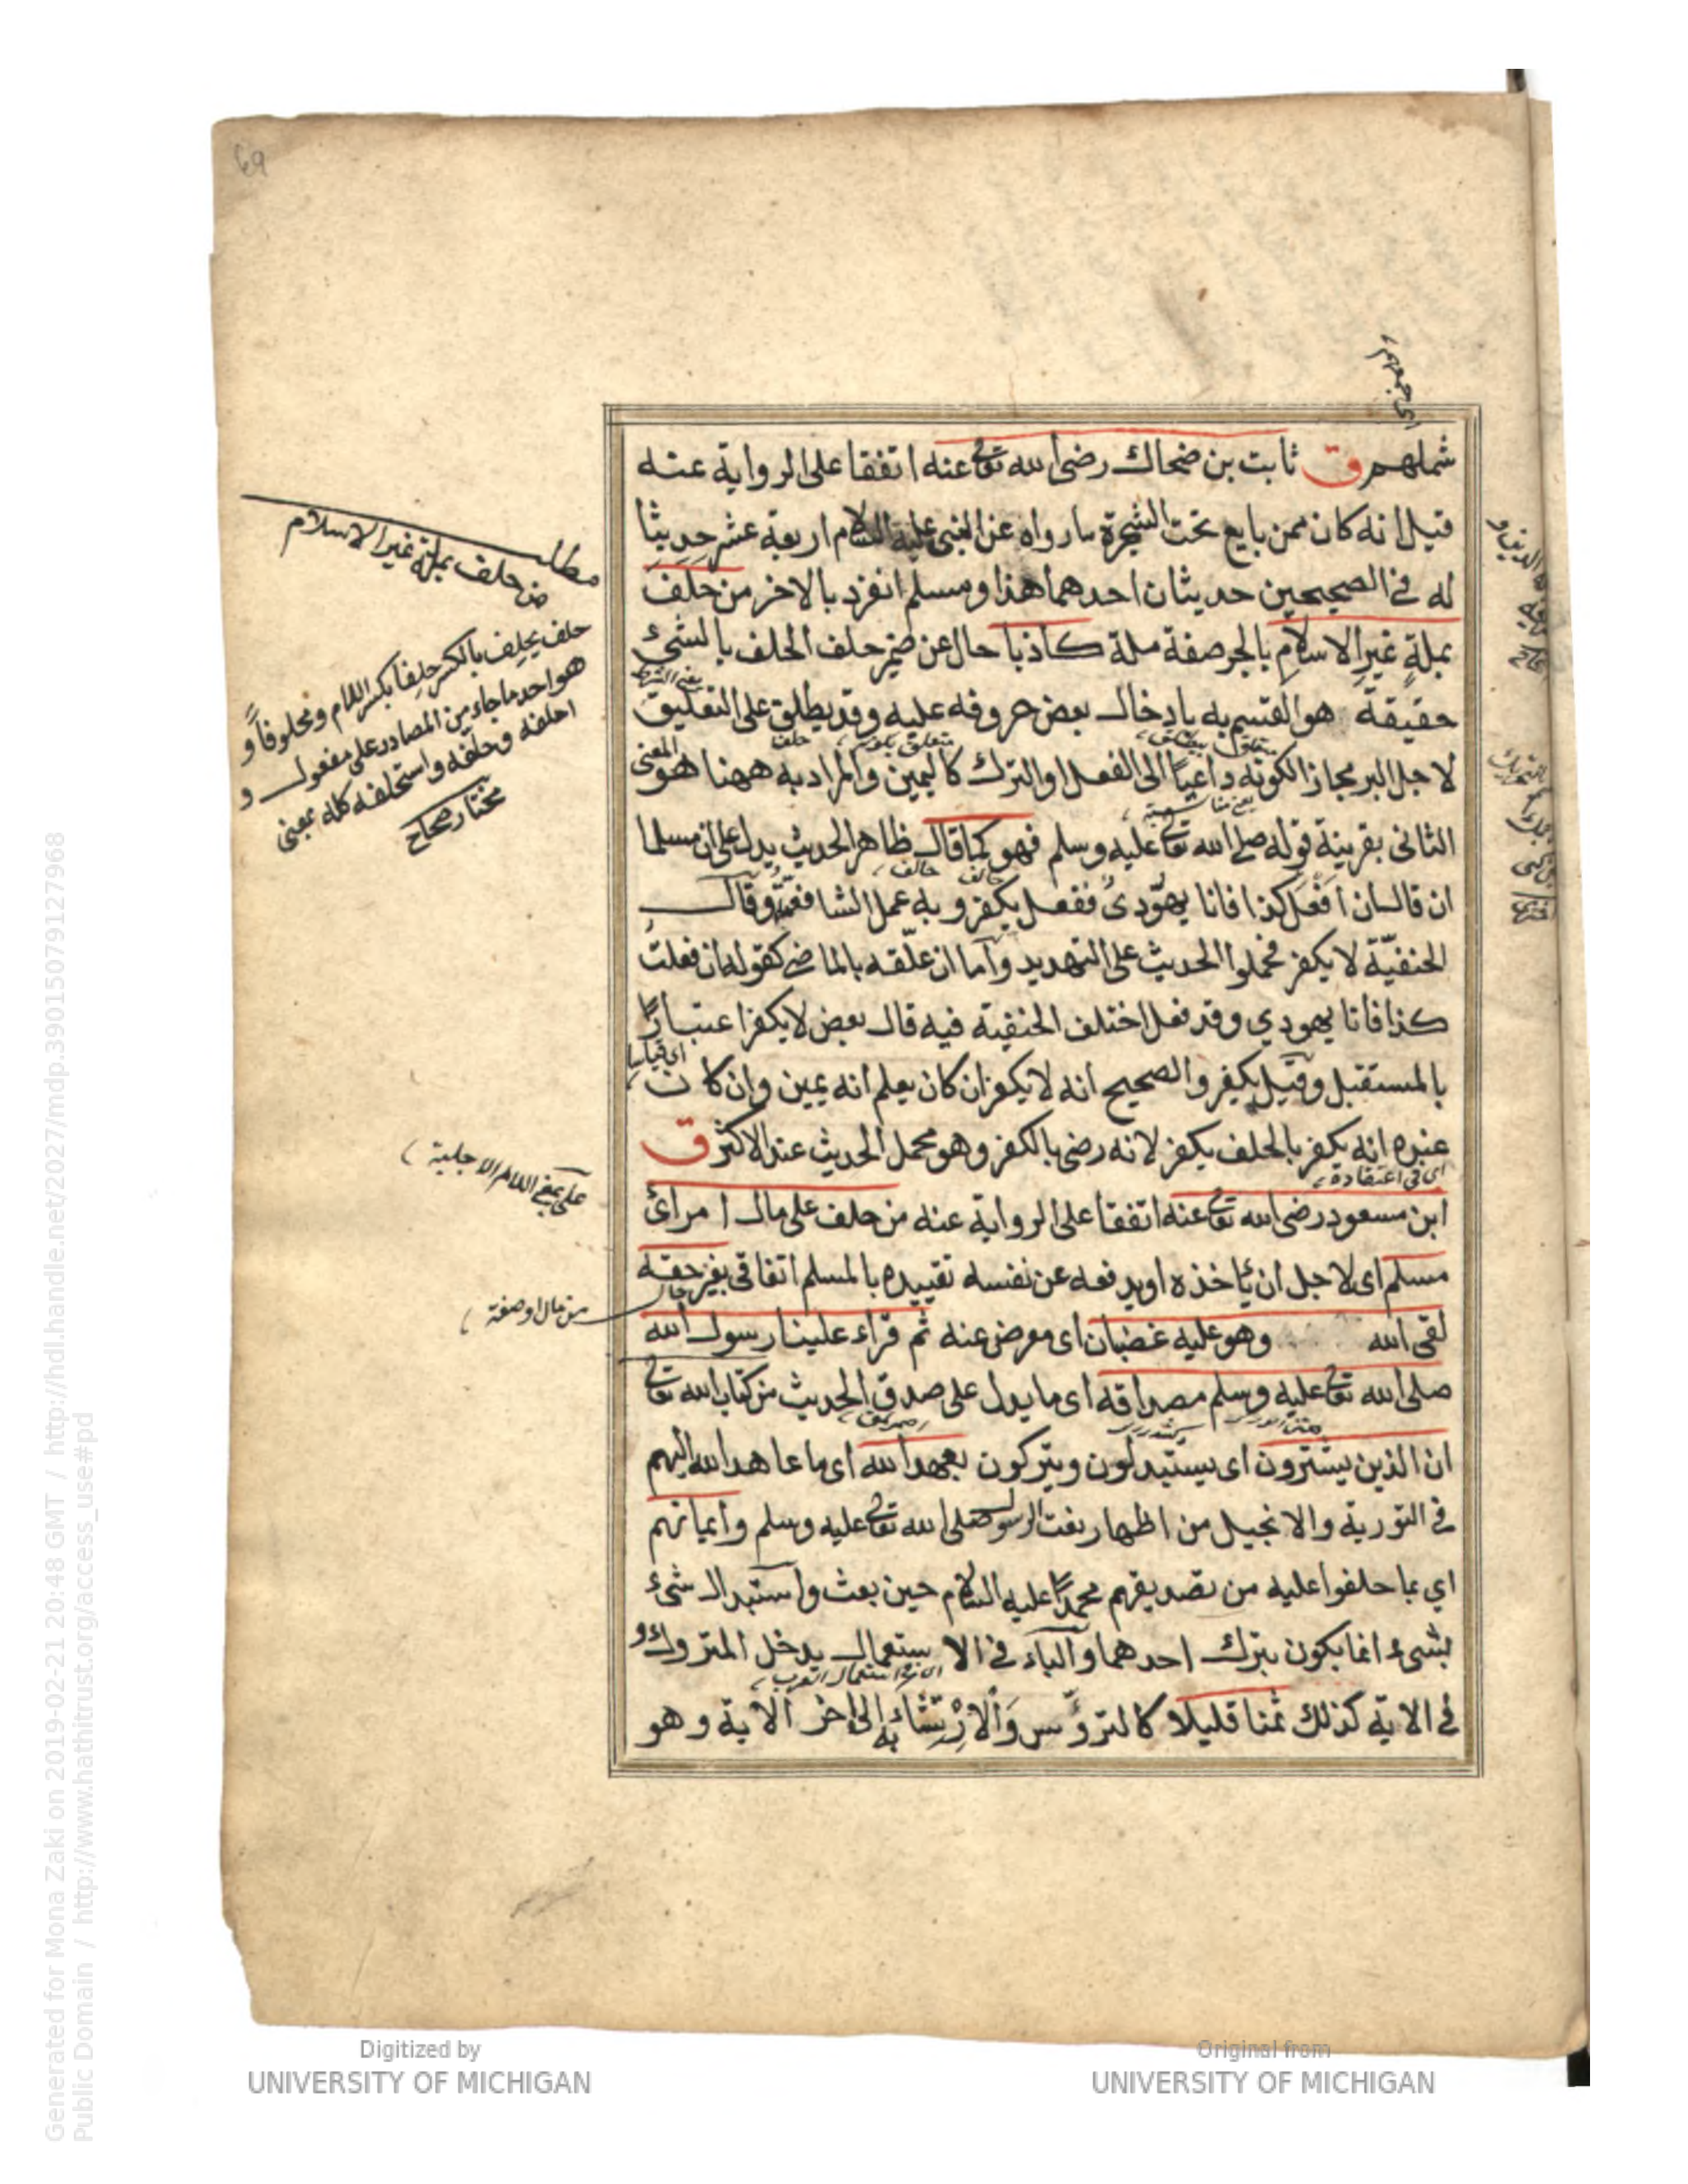 69
شملهم ق ثابت بن ضحاك رضى الله تعالى عنه اتفقا على الرواية عنه
قيل انه كان ممن بايع تحت الشجرة مارواه عن النبى عليه السلام اربعة عشر حديثا
له فى الصحيحين حديثان احدهما هذا ومسلم انفرد بالاخر من حلف
بملةٍ غيرِ الاسلامِ بالجر صفة ملة كاذبا حال عن ضمير حلف الحلف بالشىء
حقيقة هو القسم به بادخال بعض حروفه عليه وقد يطلق على التعليق
لاجل البر مجازا لكونه داعيا الى الفعل او الترك كاليمين والمراد به ههنا هو المعنى
الثانى بقرينة قوله صلى الله تعالى عليه وسلم فهو كما قال ظاهر الحديث يدل على ان مسلما
ان قال ان افعل كذا فانا يهودى ففعل يكفر وبه عمل الشافعية وقال
الحنفيّة لا يكفر فحملوا الحديث على التهديد واما ان علّقه بالماضى كقوله ان فعلت
كذا فانا يهودي وقد فعل اختلف الحنفية فيه قال بعض لا يكفر اعتبارًا
بالمستقبل وقيل يكفر والصحيح انه لا يكفر ان كان يعلم انه يمين وان كان
اى قياسا
عنده انه يكفر بالحلف يكفر لانه رضى بالكفر وهو محمل الحديث عند الاكثر ق
اى فى اعتقاده
ابن مسعود رضى الله تعالى عنه اتفقا على الرواية عنه من حلف على مال امرائ
مسلم اى لاجل ان ياخذه او يدفعه عن نفسه تقييده بالمسلم اتفاقى بغير حقه
لقى الله وهو عليه غضبان اى معرض عنه ثم قراء علينا رسول الله
صلى الله تعالى عليه وسلم مصداقه اى ما يدل على صدق الحديث من كتاب الله تعالى
ان الذين يشترون اى يستبدلون ويتركون بعهد الله اى ما عاهد الله اليهم
فى التورية والانجيل من اظهار نعت الرسول صلى الله تعالى عليه وسلم وايمانهم
اي بما حلفوا عليه من تصديقهم محمدًا عليه السلام حين بعث واستبدال شىء
بشىء انما يكون بترك احدهما والباء فى الاستعمال يدخل المتروك و
فى الاية كذلك ثمنا قليلا كالترؤّس وَالارْتِشَاء به الى اخر الاية وهو
مطلب
من حلف بملة غير الاسلام
حلف يحلف بالكسر حلفا بكسر اللام ومحلوفاً و
هو احد ما جاء من المصادر على مفعول و
احلفه وحلّفه واستحلفه كله بمعنى
مختار صحاح
على بمعنى اللام الاجلية
من مال او صفة
Generated for Mona Zaki on 2019-02-21 20:48 GMT / http://hdl.handle.net/2027/mdp.39015079127968
Public Domain / http://www.hathitrust.org/access_use#pd
Digitized by
UNIVERSITY OF MICHIGAN
Original from
UNIVERSITY OF MICHIGAN